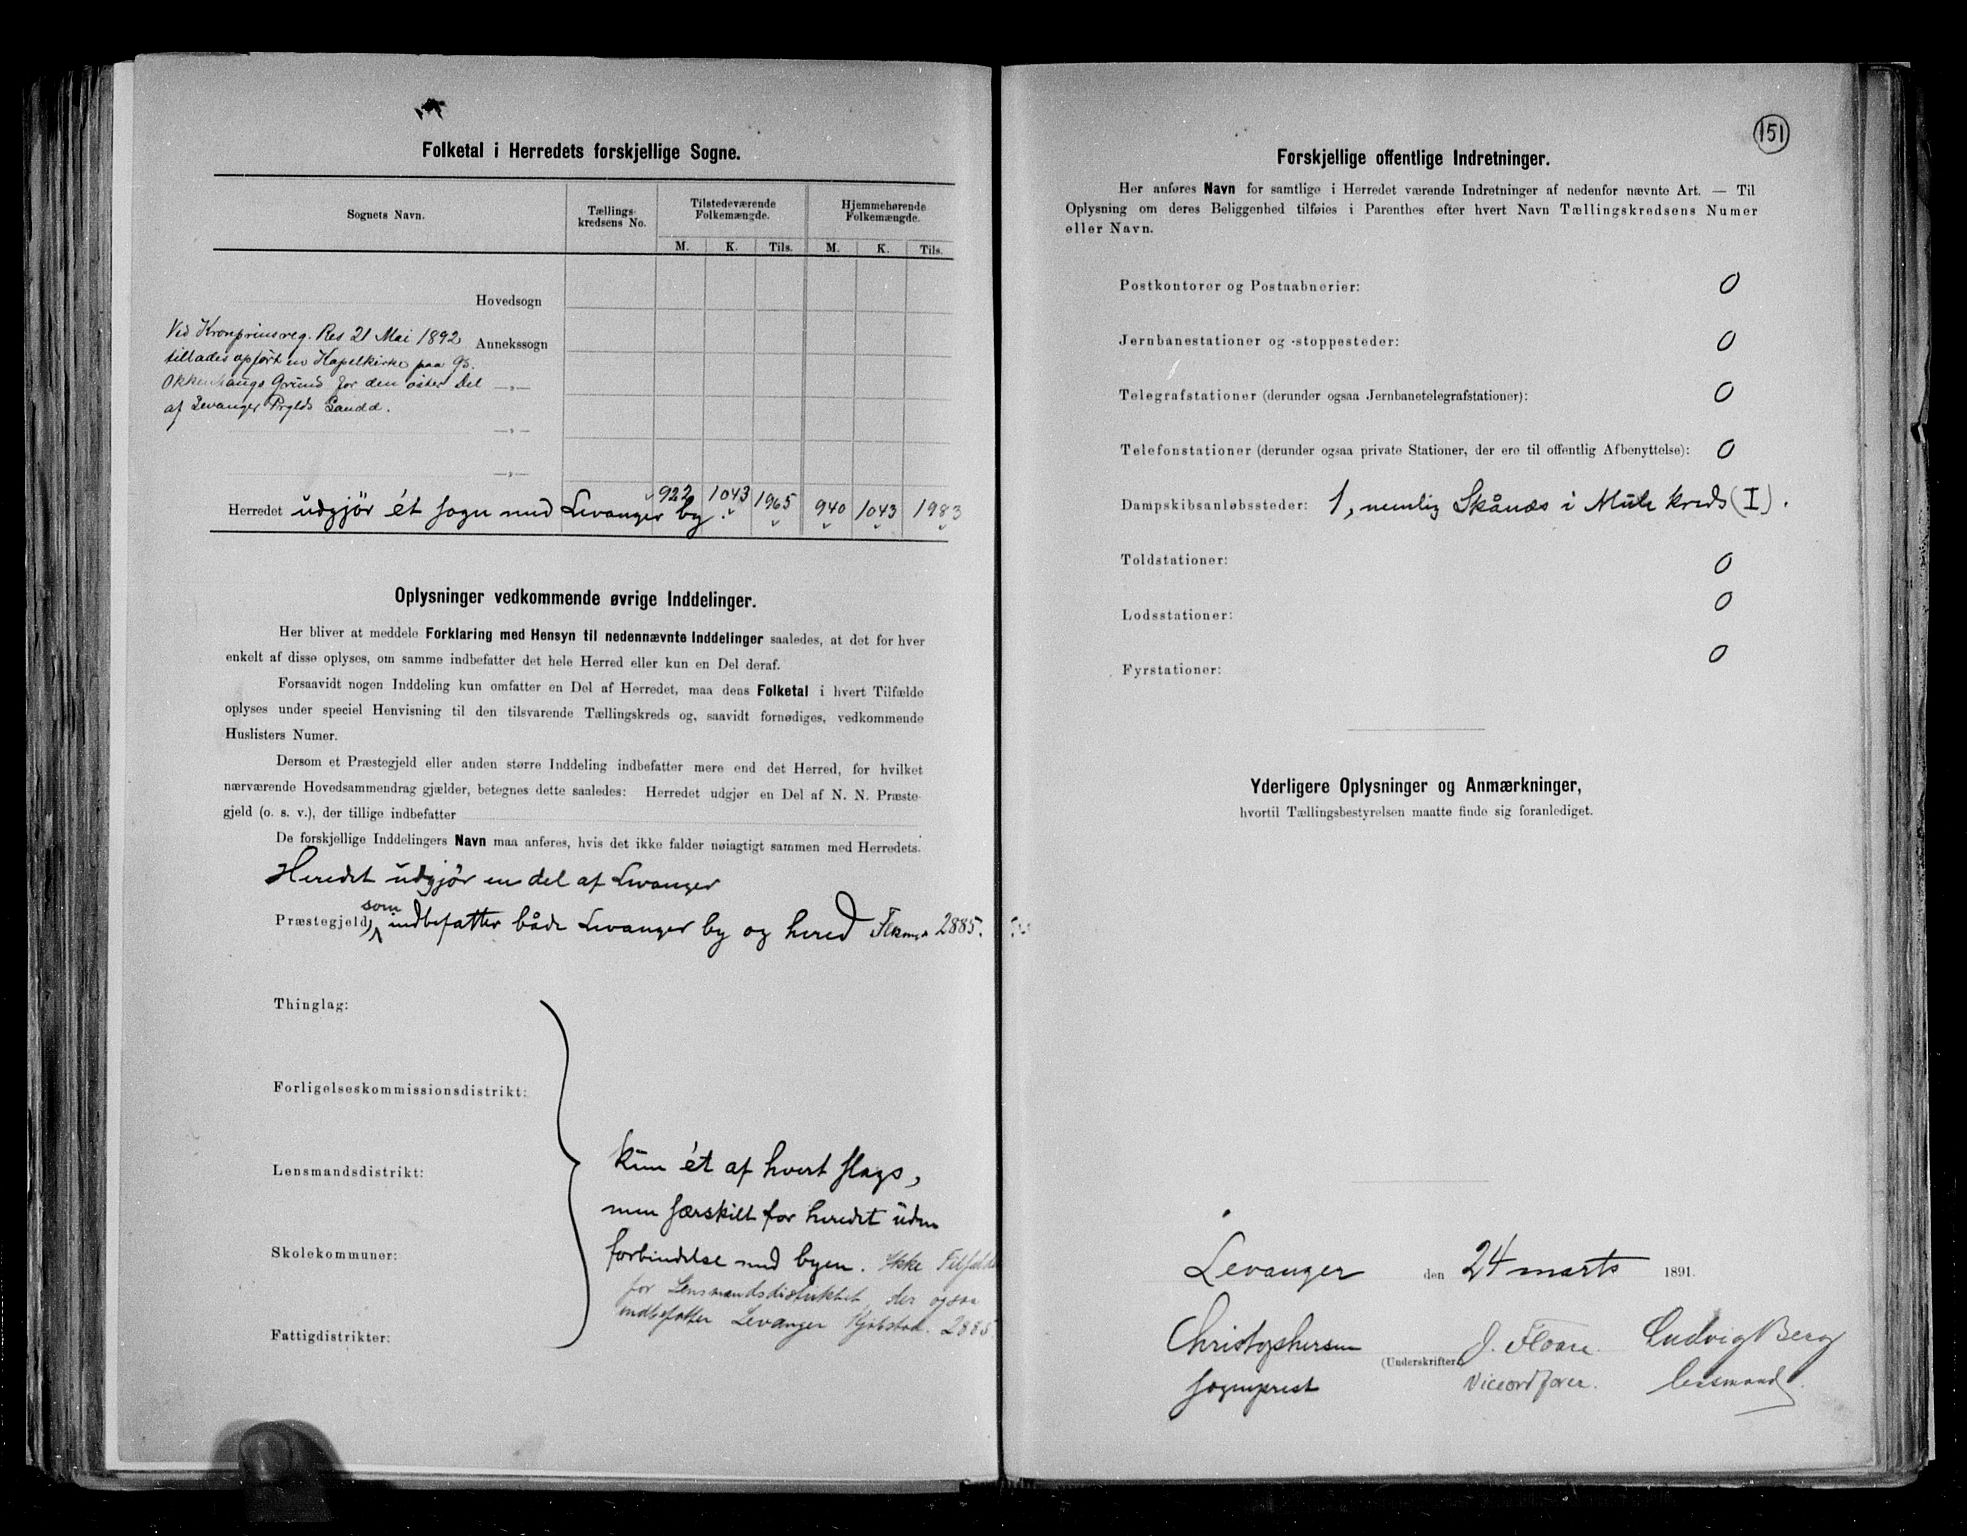 Folketal i Herredets forskjellige Sogne.
Sognets Navn.
Tællings-
kredsens No.
Tilstedeværende
Folkemængde.
Hjemmehørende
Folkemængde.
M. K. Tils. M. K. Tils.
Hovedsogn
Vid Kronprinsreg. Res 21 Mai 1892
Annekssogn
tillades opført en Kapelkirke paa Gs.
Okkenhaugs Grund for den østre Del
— „ —
af Levanger Prglds Landd.
— „ —
— „ —
Herredet udgjør ét sogn med Levanger by. 922 1043 1965 940 1043 1983
Oplysninger vedkommende øvrige Inddelinger.
Her bliver at meddele Forklaring med Hensyn til nedennævnte Inddelinger saaledes, at det for hver
enkelt af disse oplyses, om samme indbefatter det hele Herred eller kun en Del deraf.
Forsaavidt nogen Inddeling kun omfatter en Del af Herredet, maa dens Folketal i hvert Tilfælde
oplyses under speciel Henvisning til den tilsvarende Tællingskreds og, saavidt fornødiges, vedkommende
Huslisters Numer.
Dersom et Præstegjeld eller anden større Inddeling indbefatter mere end det Herred, for hvilket
nærværende Hovedsammendrag gjælder, betegnes dette saaledes: Herredet udgjør en Del af N. N. Præste-
gjeld (o. s. v.), der tillige indbefatter
De forskjellige Inddelingers Navn maa anføres, hvis det ikke falder nøiagtigt sammen med Herredets.
Heredet udgjør en del af Levanger
Præstegjeld, som indbefatter både Levanger by og hered 2885.
Thinglag:
Forligelseskommissionsdistrikt:
Lensmandsdistrikt:
Skolekommuner:
Fattigdistrikter:
kun ét af hvert slags,
men særskilt for heredet uden
forbindelse med byen. Ikke Tilfælde
for Lensmandsdistriktet, der ogsaa
indbefatter Levanger Kjøbstad. 2885.
151
Forskjellige offentlige Indretninger.
Her anføres Navn for samtlige i Herredet værende Indretninger af nedenfor nævnte Art. — Til
Oplysning om deres Beliggenhed tilføies i Parenthes efter hvert Navn Tællingskredsens Numer
eller Navn.
Postkontorer og Postaabnerier: 0
Jernbanestationer og -stoppesteder: 0
Telegrafstationer (derunder ogsaa Jernbanetelegrafstationer): 0
Telefonstationer (derunder ogsaa private Stationer, der ere til offentlig Afbenyttelse): 0
Dampskibsanløbssteder: 1, nemlig Skånæs i Mule kreds (I).
Toldstationer: 0
Lodsstationer: 0
Fyrstationer: 0
Yderligere Oplysninger og Anmærkninger,
hvortil Tællingsbestyrelsen maatte finde sig foranlediget.
Levanger den 24 marts 1891.
Christophersen J. Floan. Ludvig Berg
(Underskrifter)
sogneprest Viceordfører. lensmand.